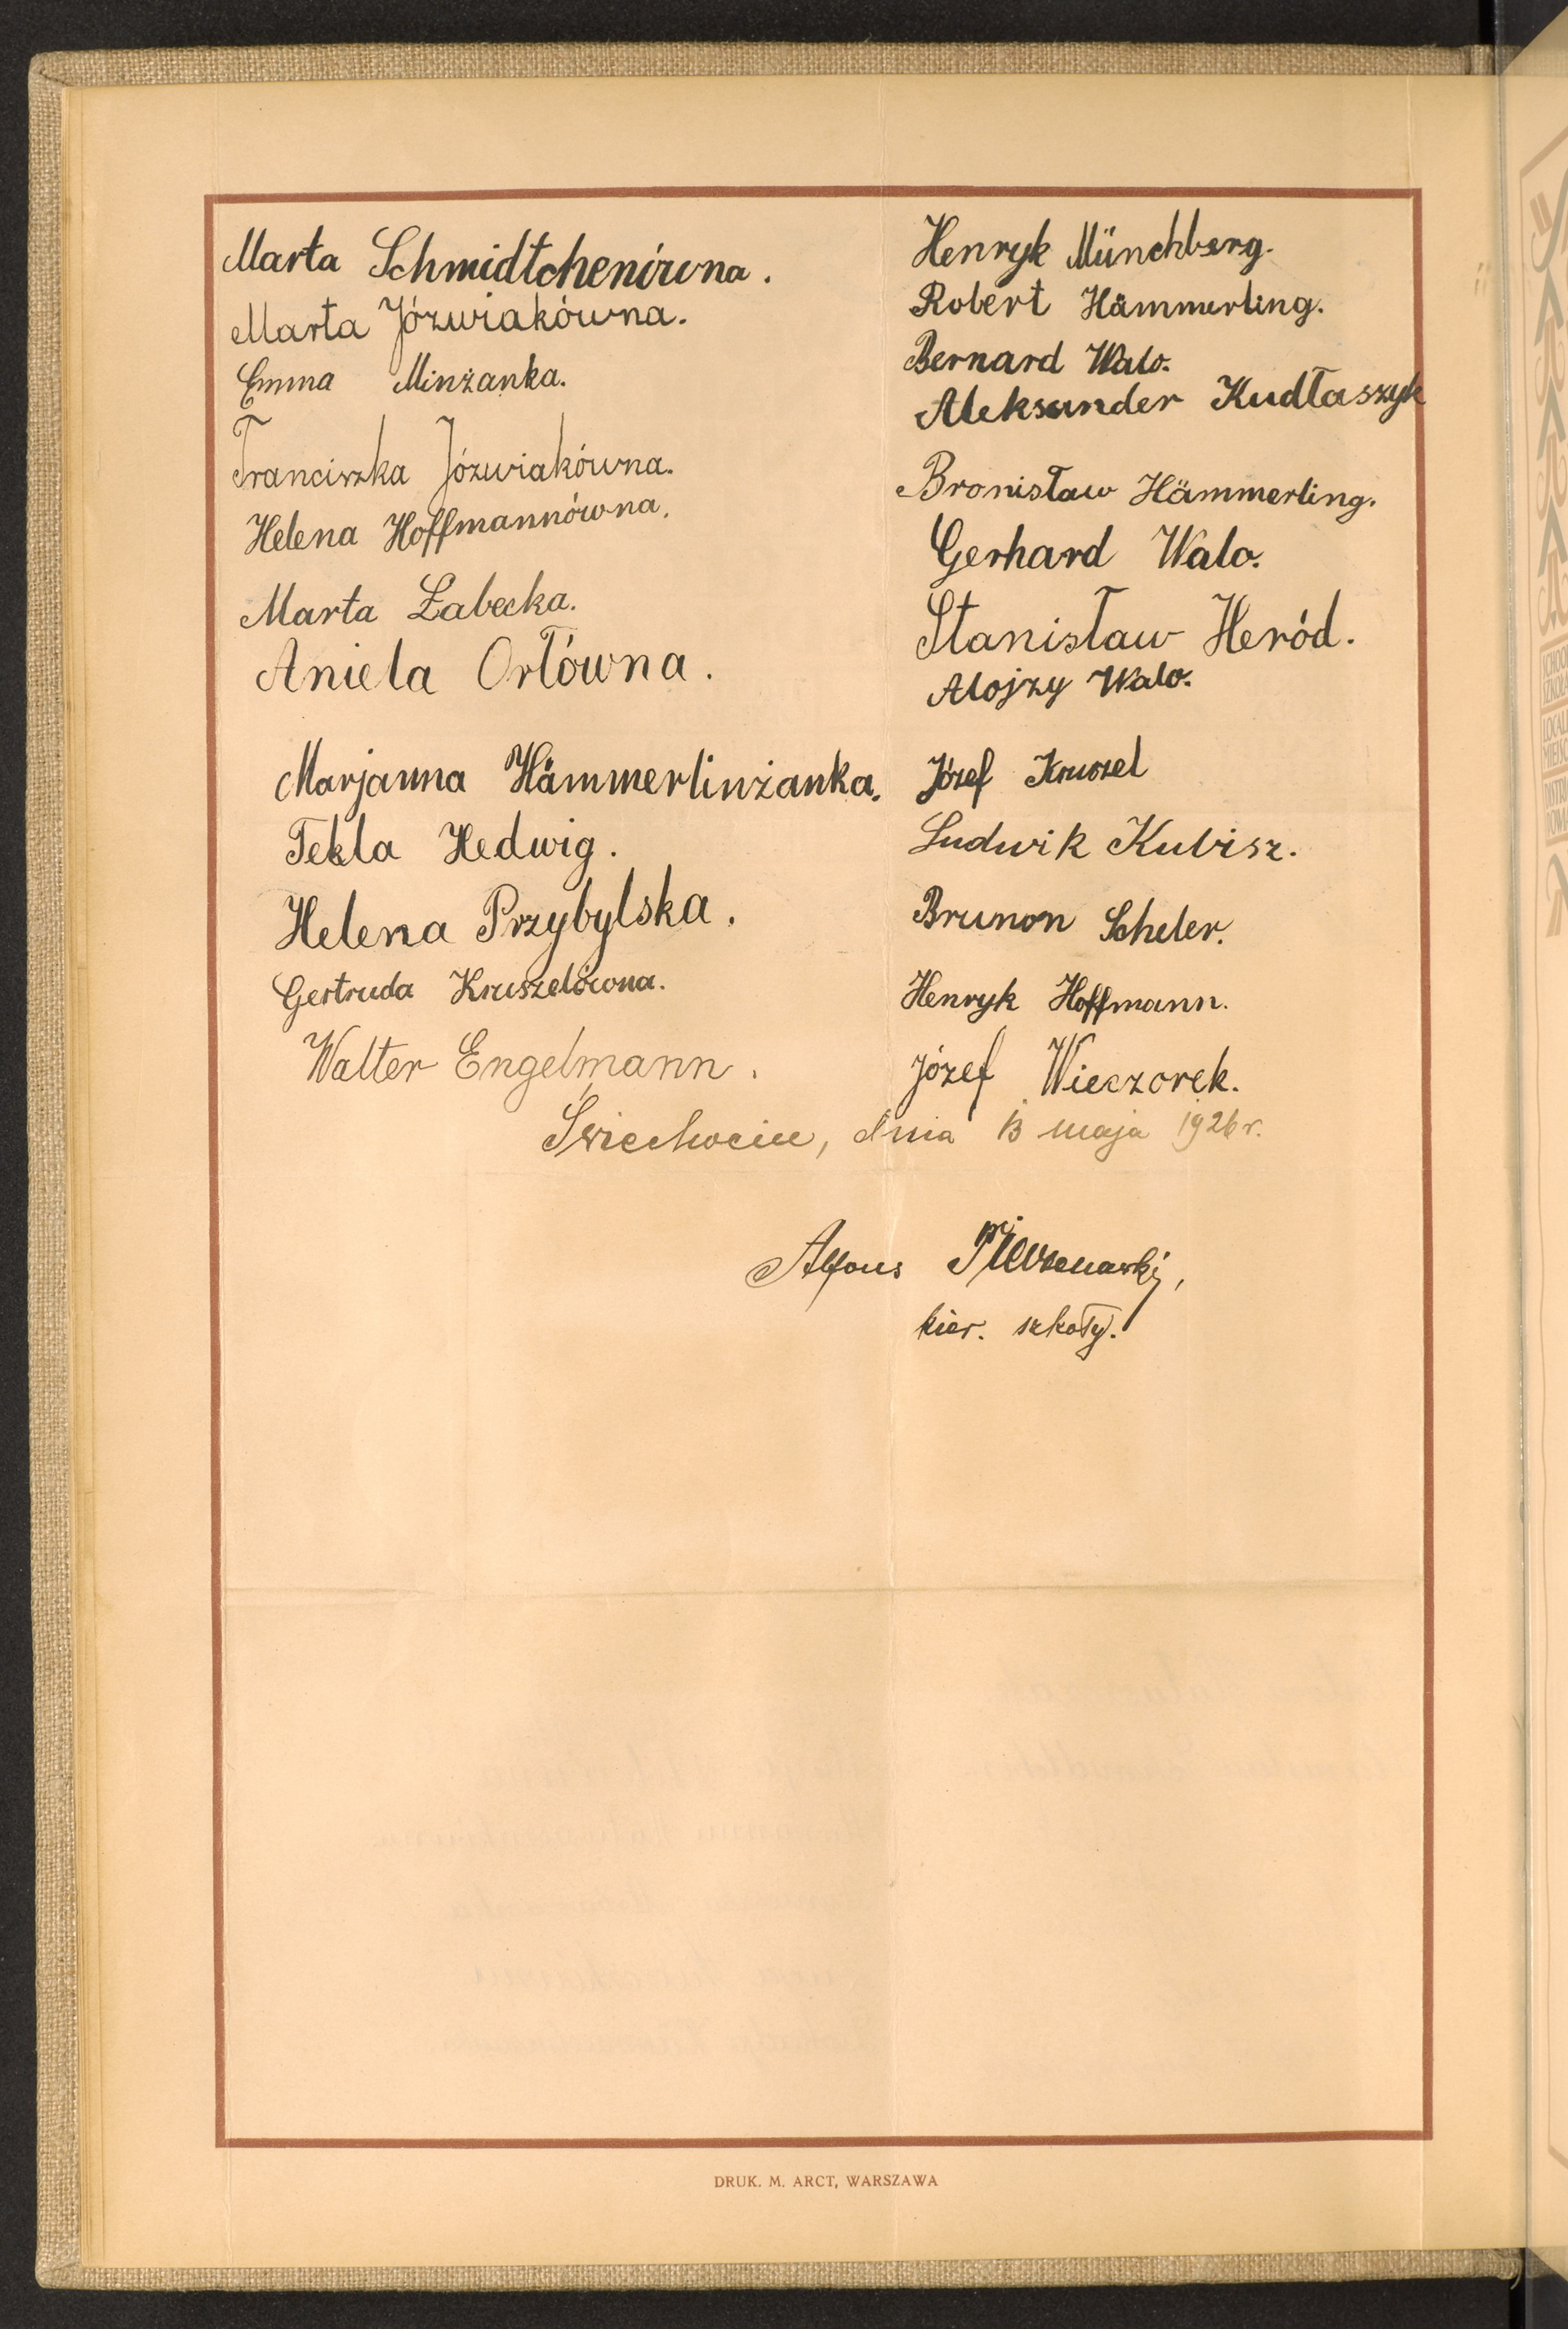 Marta Schmidtchenówna.
Marta Józwiakówna.
Emma Minżanka.
Franciszka Józwiakówna.
Helena Hoffmannówna.
Marta Łabecka.
Aniela Orłówna.
Marjanna Hämmerlinżanka.
Tekla Hedwig.
Helena Przybylska.
Gertruda Kruszelówna.
Walter Engelmann.
Henryk Münchberg.
Robert Hämmerling.
Bernard Walo.
Aleksander Kudłaszyk
Bronisław Hämmerling.
Gerhard Walo.
Stanisław Heród.
Alojzy Walo.
Józef Kruszel
Ludwik Kubisz.
Brunon Scheler.
Henryk Hoffmann.
Józef Wieczorek.
dnia 13 maja 1926 r.
Alfons
kier. szkoły.
DRUK. M. ARCT, WARSZAWA